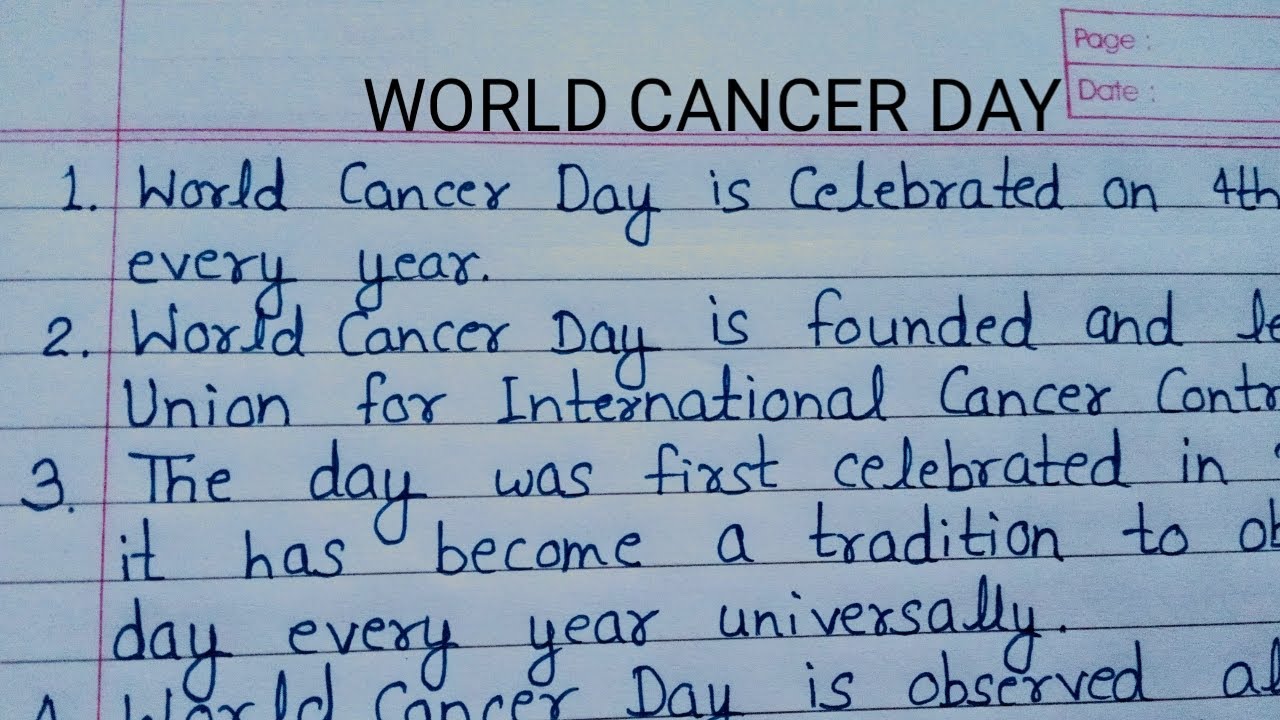 Page :
WORLD CANCER DAY
Date :
1. World Cancer Day is Celebrated on 4th
every year.
2. World Cancer Day is founded and
Union for International Cancer
3. The day was first celebrated in
it has become a tradition to
day every year universally.
World Cancer Day is observed